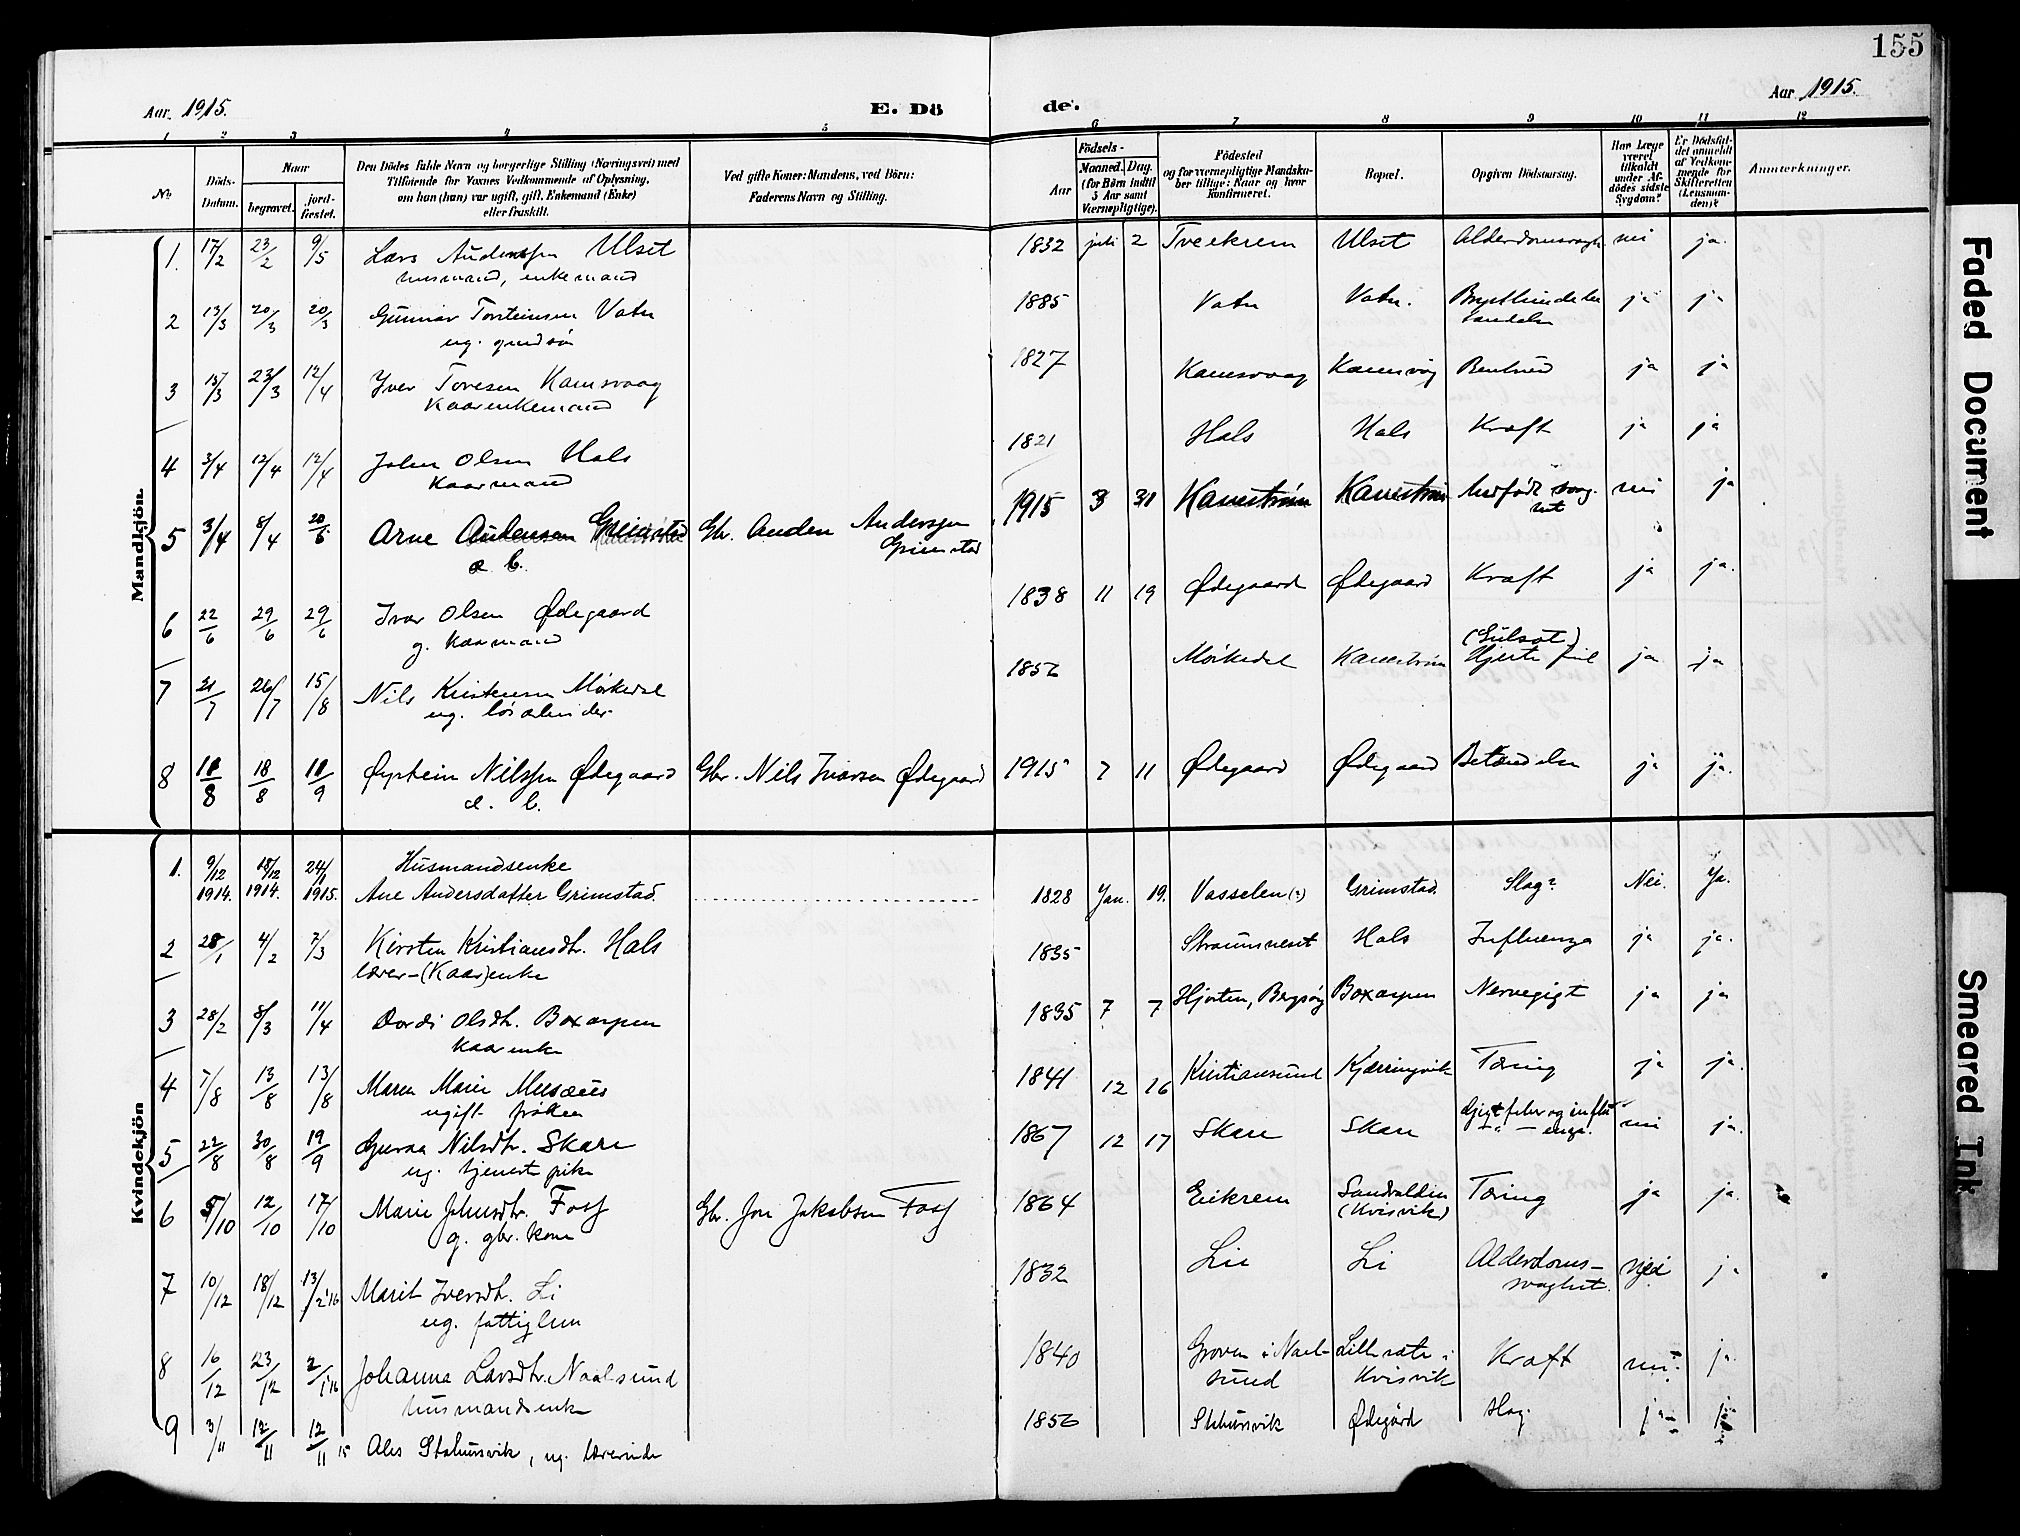 155
Aar 1915.
E. Dö
de.
Aar 1915.
1 2 3 4 5 6 7 8 9 10 11 12
No.
Döds-
Datum.
Naar
begravet.
jord-
fæstet.
Den Dödes fulde Navn og borgerlige Stilling (Næringsvei) med
Tilföiende för Voxnes Vedkommende af Oplysning,
om hun (han) var ugift, gift, Enkemand (Enke)
eller fraskilt.
Ved gifte Koner: Mandens, ved Börn:
Faderens Navn og Stilling.
Födsels-
Aar
Maaned.
Dag.
(for Börn indtil
5 Aar samt
Værnepligtige).
Födested
og for værnepligtige Mandska-
ber tillige: Naar og hvor
konfirmeret.
Bopæl.
Opgiven Dödsaarsag.
Har Læge
været
tilkaldt
under Af-
dödes sidste
Sygdom?
Er Dödsfal-
det anmeldt
af Vedkom-
mende for
Skifteretten
(Lensman-
den)?
Anmærkninger.
Mandkjön.
1. 17/2 23/2 9/5 Lars Anderssen Ulset 1832 juli 2 Tveekrem Ulset nei ja.
husmand, enkemand
2 13/3 20/3 20/3 Gunnar Torsteinsen Vatn 1885 Vatn Vatn. ja ja
ug. grdsön
3 15/3 23/3 12/4 Iver Toresen Kamsvaag 1827 Kamsvaag Kamsvåg ja ja
Kaarenkemand
4 3/4 12/4 12/4 Johan Olsen Hals 1821 Hals Hals Kræft ja ja
Kaarmand
5 3/4 8/4 20/6 Arne Audensen Grimstad Gbr. Auden Anderssen 1915 3 31 Kanestrøm Kanestrøm Medfödt svag- nei ja
Grimstad
het
d. b.
6 22/6 29/6 29/6 Ivar Olsen Ødegaard 1838 11 19 Ødegaard Ødegaard Kræft ja ja.
g. Kaarmand
7 21/7 26/7 15/8 Nils Kristensen Mörkedal 1856 Mörkedal Kanestrøm (Gulsot) ja ja
Hjertefeil
ug. lösarbeider
8 11/8 18/8 11/9 Øystein Nilssen Ødegaard Gbr. Nils Ivarsen Ødegaard 1915 7 11 Ødegaard Ødegaard Betændelse ja ja.
d. b.
Kvindekjön
1. 9/12 18/12 24/1 Husmandsenke
1914. 1914. 1915. Ane Andersdatter Grimstad. 1828 Jan. 19. Vasselen (?) Grimstad. Slag? Nei. Ja.
2 28/1 4/2 7/3 Kirsten Kristiansdtr. Hals 1835 Straumsneset Hals Influenza ja ja.
lærer-(Kaar)enke
3 28/2 8/3 11/4 Dordi Olsdtr. Boxaspen 1835 7 7 Hjorten, Bergsöy Boxaspen Nervegigt ja ja
Kaarenke
4 7/8 13/8 13/8 Maren Marie Musæus 1841 12 16 Kristiansund Kjærringvik Tæring ja ja.
ugift fröken
5 22/8 30/8 19/9 Guroa Nilsdtr. Skare 1867 12 17 Skare Skare Gigtfeber og influ- nei ja.
enza.
ug. tjenestpike
6 5/10 12/10 17/10 Marie Johnsdtr. Foss Gbr. Jon Jakobsen Foss 1864 Eikrem Sandvalden Tæring ja ja.
(Kvisvik)
g. gbr. kone
7 10/12 18/12 13/2 '16 Marit Iversdtr. Li 1832 Lii Li Alderdoms- nei ja
svaghet.
ug. fattiglem
8 16/12 23/12 2/1 '16 Johanna Larsdtr. Naalsund 1840 Groven i Naal- Kræft nei. ja.
sund Kvisvik
husmandsenke
9 3/11 12/11 12/11 15 Ales Stokursvik, ug. lærerinde 1856 Ødegård Slag. ja ja
Faded Document
Smeared Ink